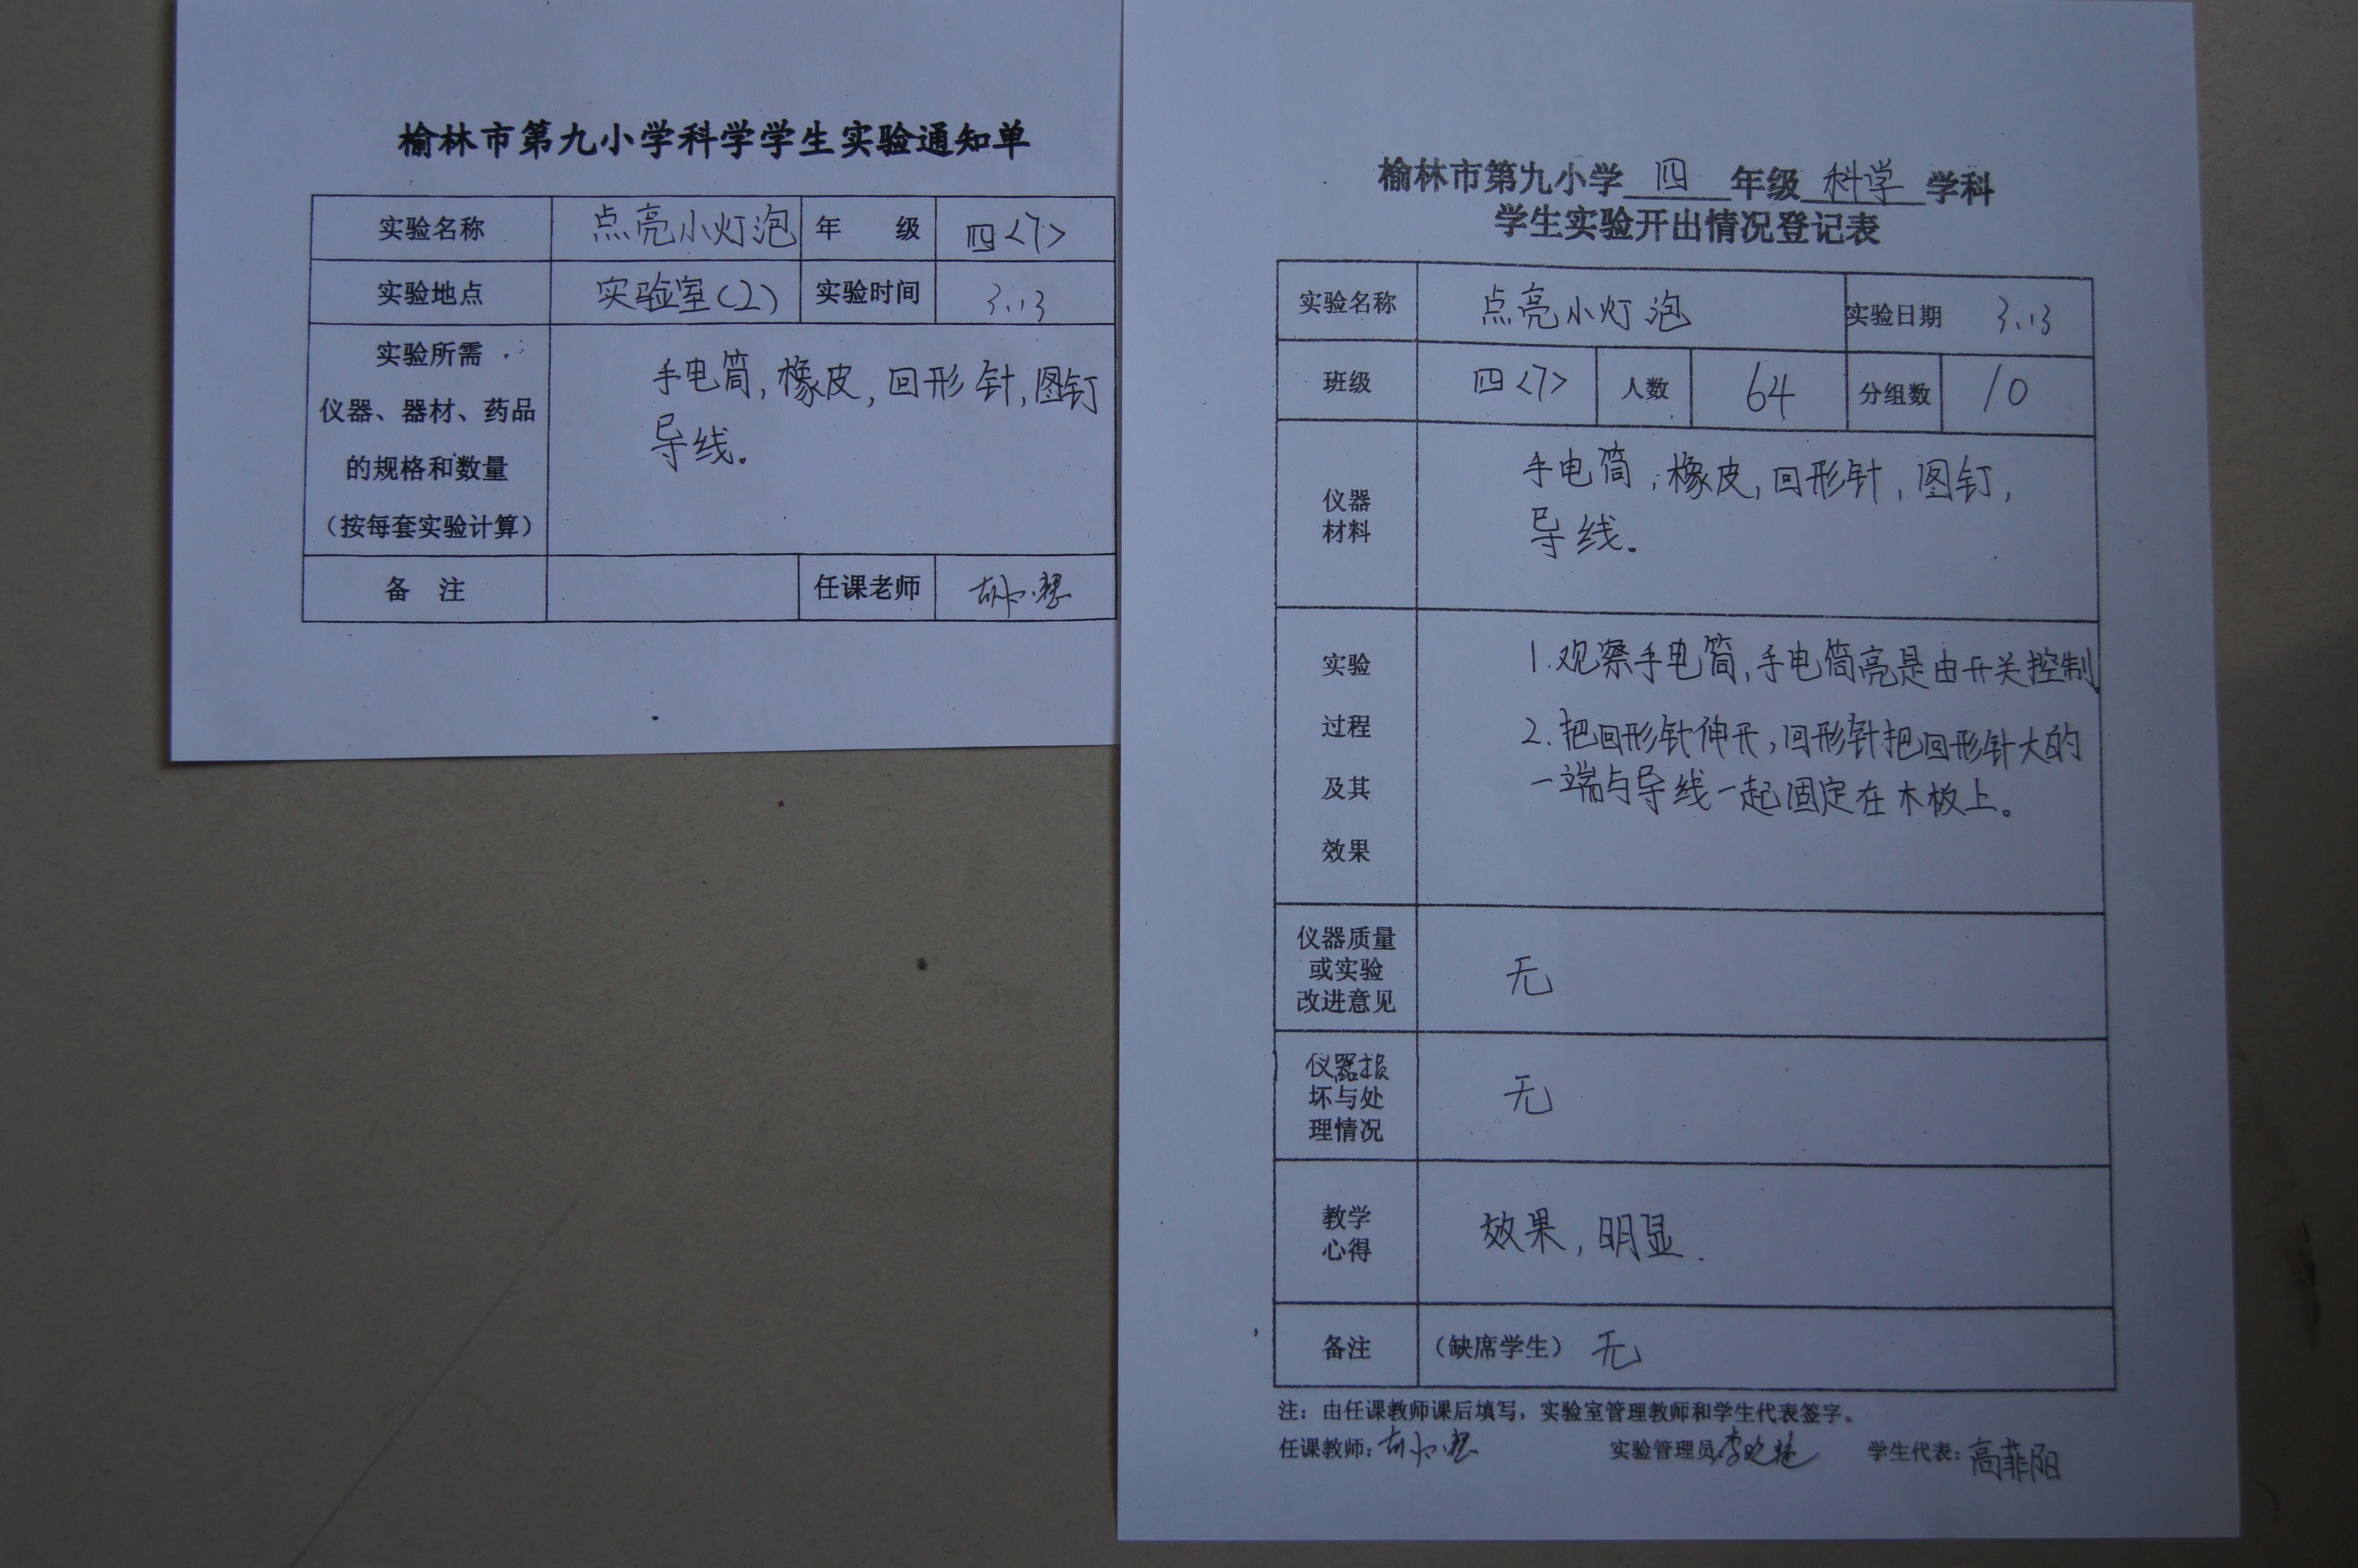 榆林市第九小学科学学生实验通知单
实验名称 点亮小灯泡 年 级 四<7>
实验地点 实验室(2) 实验时间 3.13
实验所需
仪器、器材、药品
的规格和数量
（按每套实验计算）
手电筒,橡皮,回形针,图钉
导线。
备 注 任课老师
榆林市第九小学 四 年级 科学 学科
学生实验开出情况登记表
实验名称 点亮小灯泡 实验日期 3.13
班级 四<7> 人数 64 分组数 10
仪器
材料
手电筒,橡皮,回形针,图钉,
导线。
实验
过程
及其
效果
1.观察手电筒,手电筒亮是由开关控制.
2.把回形针伸开,回形针把回形针大的
一端与导线一起固定在木板上。
仪器质量
或实验
改进意见
无
仪器损
坏与处
理情况
无
教学
心得
效果,明显.
备注 （缺席学生） 无
注：由任课教师课后填写，实验室管理教师和学生代表签字。
任课教师: 实验管理员 学生代表: 高菲阳